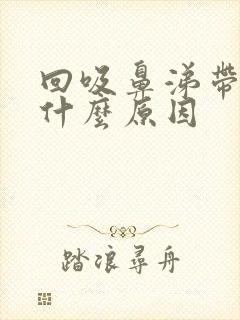 回吸鼻涕帶
什麼原因
踏浪尋舟